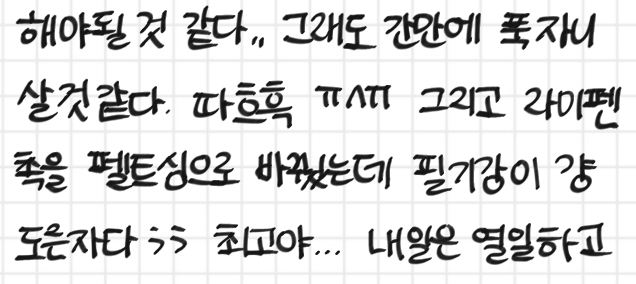 해야될 것 같다,, 그래도 간만에 푹 자니
살것 같다. 따흐흑 ㅠㅅㅠ 그리고 라이펜
촉을 펠트심으로 바꿨는데 필기감이 걍
도른자다 ;; 최고야... 내일은 열일하고